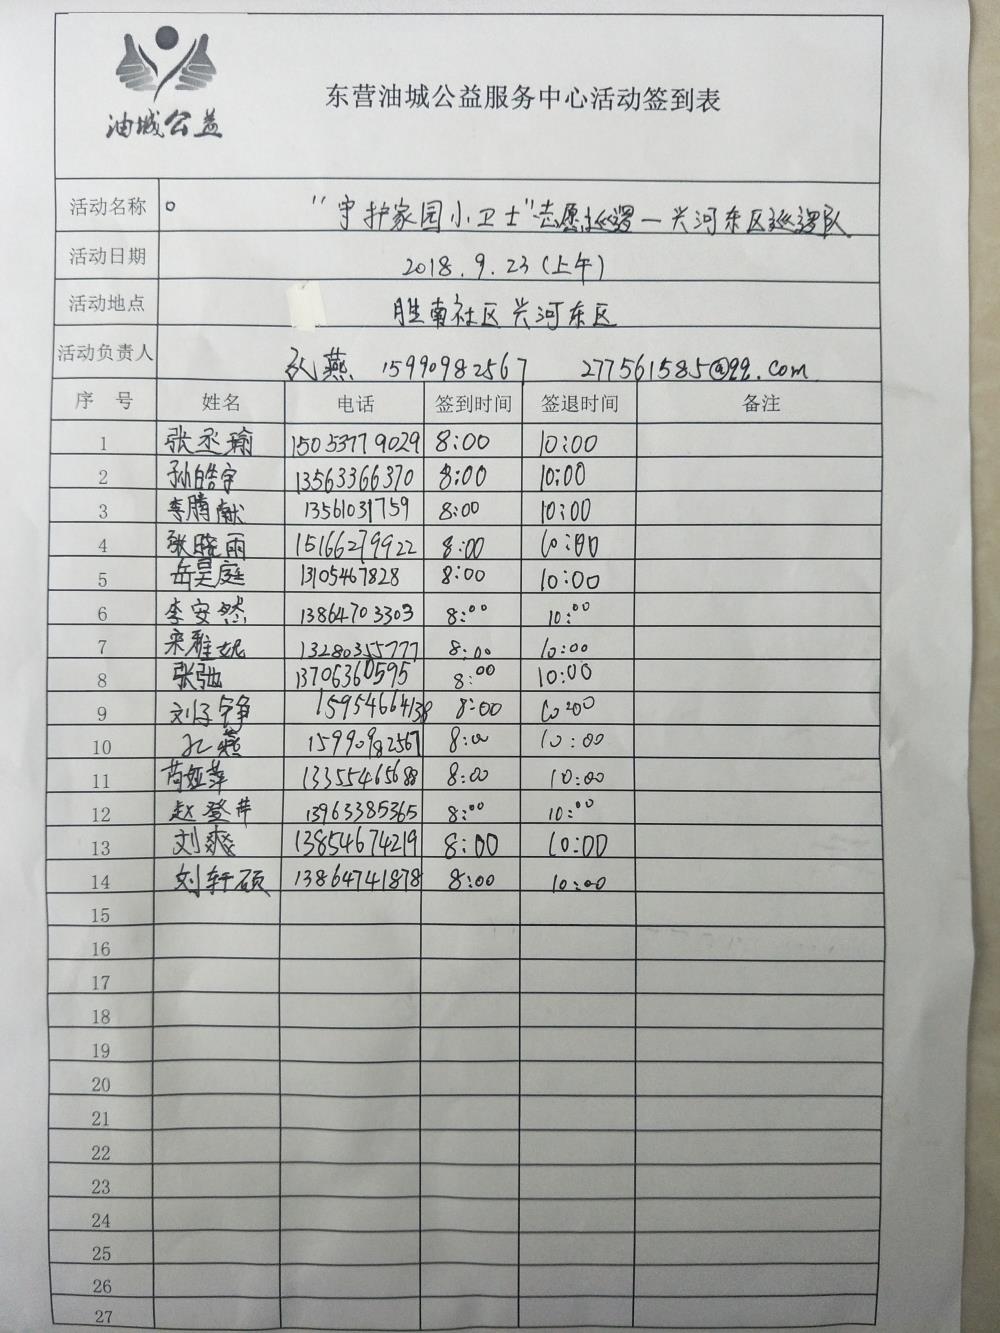 油城公益
东营油城公益服务中心活动签到表
活动名称 “守护家园小卫士”志愿巡逻—兴河东区巡逻队
活动日期 2018.9.23(上午)
活动地点 胜南社区兴河东区
活动负责人 孔燕 15990982567 277561585@qq.com
序 号 姓名 电话 签到时间 签退时间 备注
1 张丞瑜 15053779029 8:00 10:00
2 孙皓宇 13563366370 8:00 10:00
3 李腾献 13561031759 8:00 10:00
4 张晓雨 15166279922 8:00 10:00
5 岳昊庭 13105467828 8:00 10:00
6 李安然 13864703303 8:00 10:00
7 宋雅妮 13280355777 8:00 10:00
8 张弛 13706360595 8:00 10:00
9 刘子铮 15954664138 8:00 10:00
10 孔燕 15990982567 8:00 10:00
11 芮娅萍 13355465688 8:00 10:00
12 赵登苹 13963385365 8:00 10:00
13 刘爽 13854674219 8:00 10:00
14 刘轩硕 13864741878 8:00 10:00
15
16
17
18
19
20
21
22
23
24
25
26
27